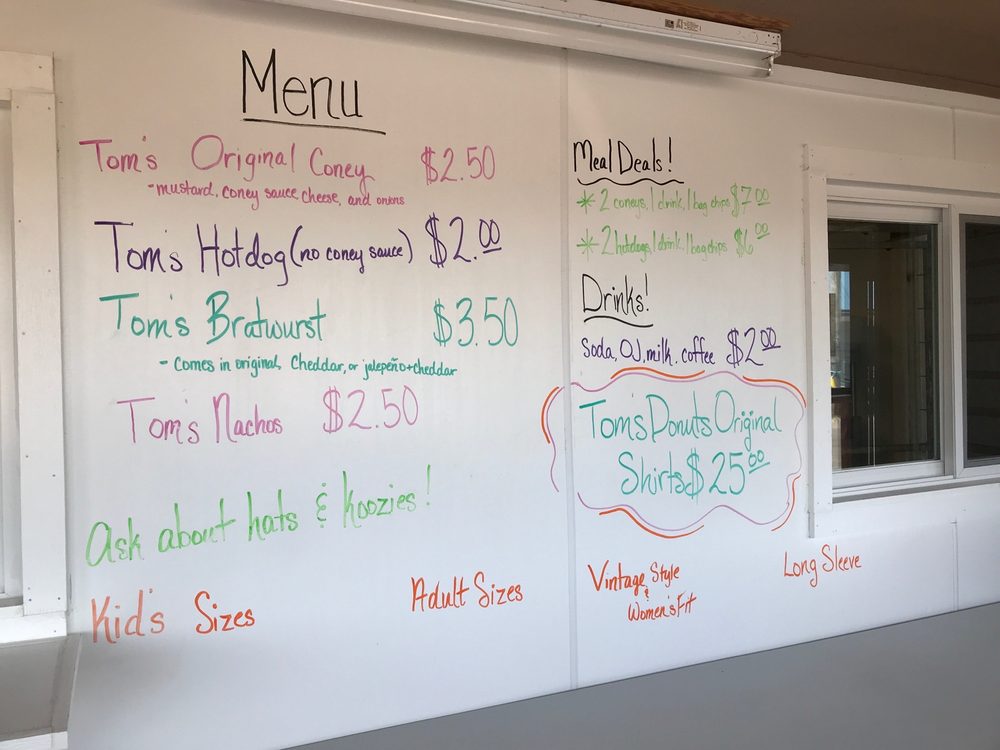 Menu
Tom's Original Coney $2.50
-mustard, coney sauce, cheese, and onions
Tom's Hotdog (no coney sauce) $2.00
Tom's Bratwurst $3.50
- Comes in original, Cheddar, or jalepeño+cheddar
Tom's Nachos $2.50
Ask about hats & koozies!
Kid's Sizes
Adult Sizes
Meal Deals!
* 2 coneys, 1 drink, 1 bag chips $7.00
* 2 hotdogs, 1 drink, 1 bag chips $6.00
Drinks!
Soda, OJ, milk, coffee $2.00
Tom's Donuts Original
Shirts $25.00
Vintage Style
&
Women's Fit
Long Sleeve